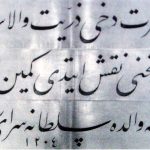 رت دخی ذریت والا
نحنی نقش ایتدی کمین
ه والده سلطانه سرای
١٢٠٤